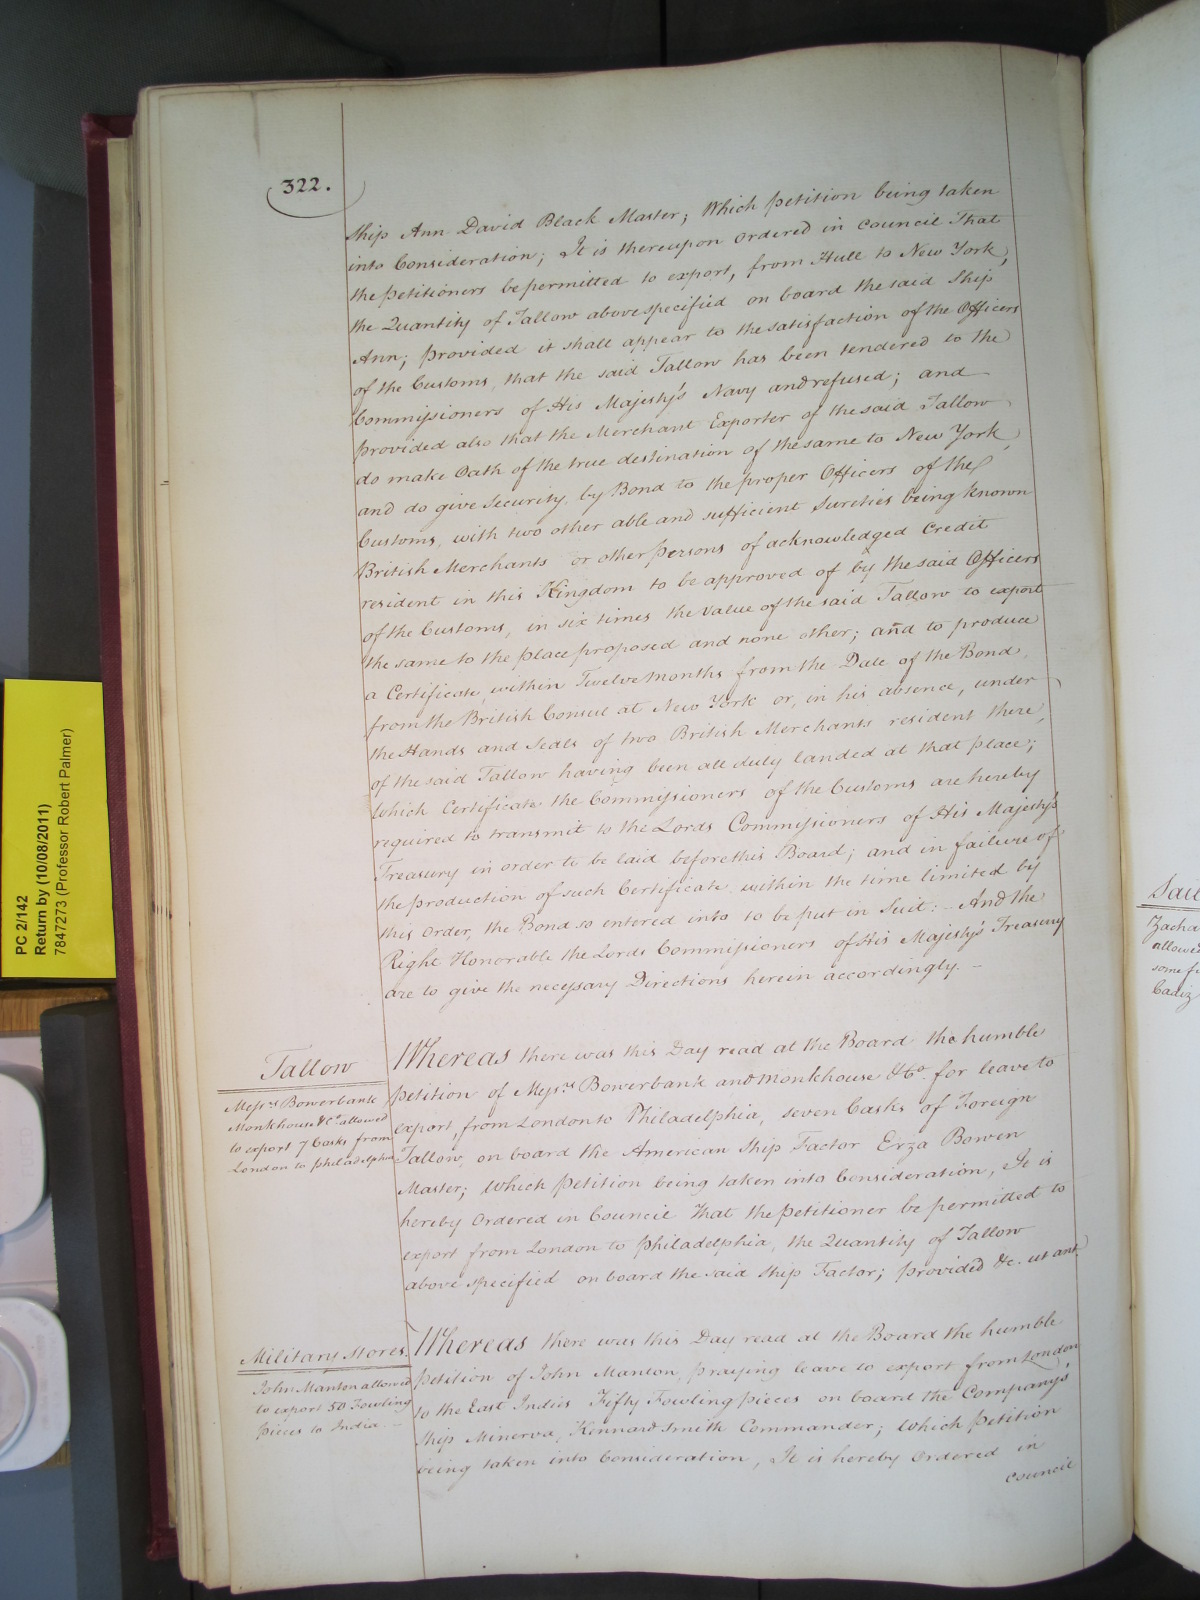 322.
Ship Ann David Black Master; Which petition being taken
into Consideration; It is thereupon ordered in Council That
the petitioners be permitted to export, from Hull to New York,
the Quantity of Tallow above specified on board the said Ship
Ann; provided it shall appear to the satisfaction of the Officers
of the Customs, that the said Tallow has been tendered to the
Commissioners of His Majesty's Navy and refused; and
provided also that the Merchant Exporter of the said Tallow
do make Oath of the true destination of the same to New York,
and do give Security by Bond to the proper Officers of the
Customs, with two other able and sufficient Sureties being known
British Merchants or other persons of acknowledged Credit
resident in this Kingdom to be approved of by the said Officers
of the Customs, in six times the value of the said Tallow to export
the same to the place proposed and none other; and to produce
a Certificate, within Twelve Months from the Date of the Bond,
from the British Consul at New York or, in his absence, under
the Hands and Seals of two British Merchants resident there,
of the said Tallow having been all duly landed at that place;
which Certificate the Commissioners of the Customs are hereby
required to transmit to the Lords Commissioners of His Majesty's
Treasury in order to be laid before this Board; and in failure of
the production of such Certificate within the time limited by
this Order, the Bond so entered into to be put in Suit: - And the
Right Honorable the Lords Commissioners of His Majesty's Treasury
are to give the necessary Directions herein accordingly. -
Tallow
Messrs Bowerbank
Monkhouse & Co allowed
to export 7 Casks from
London to philadelphia
Whereas there was this Day read at the Board the humble
petition of Messrs Bowerbank and Monkhouse & Co. for leave to
export, from London to Philadelphia, seven Casks of Foreign
Tallow, on board the American Ship Factor Erza Bowen
Master; Which petition being taken into Consideration, It is
hereby Ordered in Council That the petitioner be permitted to
export from London to philadelphia, the Quantity of Tallow
above specified on board the said Ship Factor; provided &c. ut ant.
Military Stores.
John Manton allowed
to export 50 Fowling
pieces to India. -
Whereas there was this Day read at the Board the humble
petition of John Manton, praying leave to export from London
to the East Indies Fifty Fowling pieces on board the Company's
Ship Minerva, Kennard Smith Commander; Which petition
being taken into Consideration, It is hereby Ordered in
Council
PC 2/142
Return by (10/08/2011)
7847273 (Professor Robert Palmer)
Zacha
allowed
some fi
Cadiz